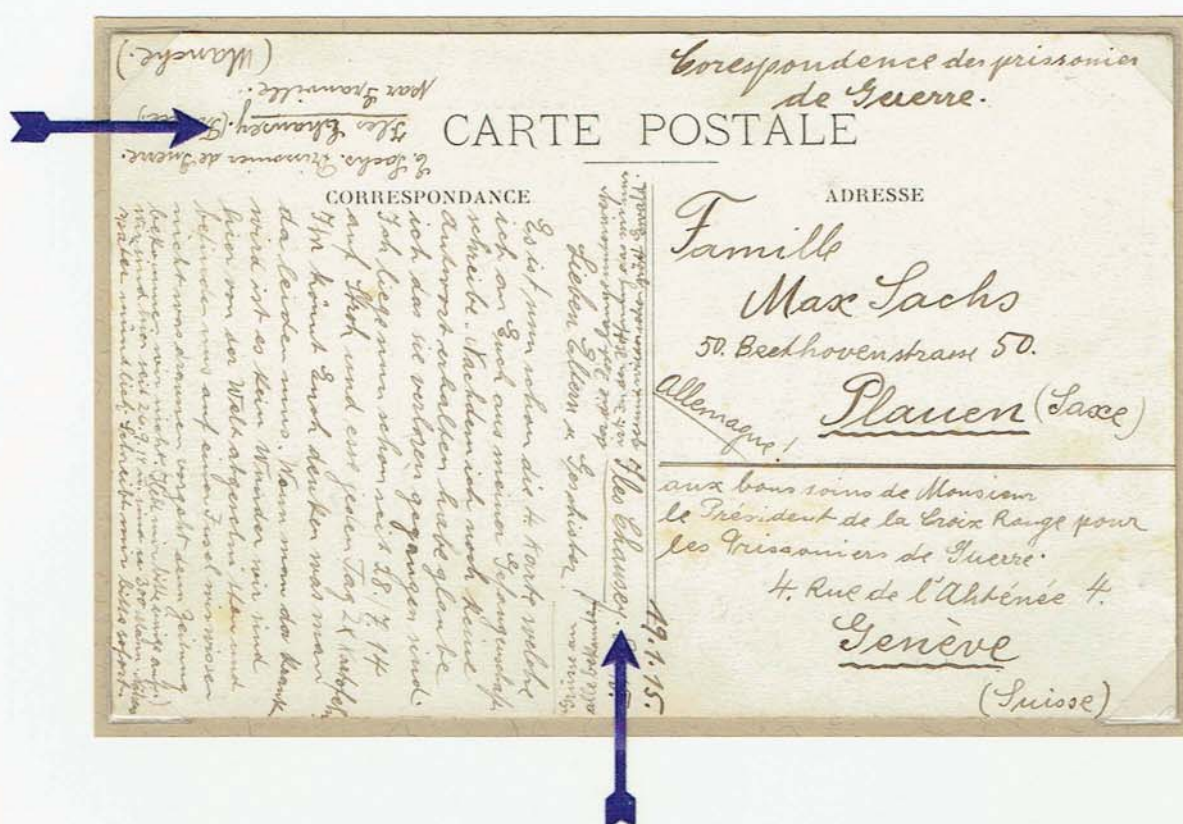 Corespondence des prissonier
de Guerre.
CARTE POSTALE
CORRESPONDANCE
ADRESSE
Famille
Max Sachs
50. Beethovenstrasse 50.
Plauen (Saxe)
Allemagne!
aux bons soins de Monsieur
le Président de la Croix Rouge pour
les Prissoniers de Guerre.
4. Rue de l'Ahténée 4.
Genève
(Suisse)
E. Sachs. Prissonier de Guerre.
Iles Chausey.
par Granville.
(Manche.)
Iles Chausey. 19.1.15.
Lieben Eltern u. Geschister.
Es ist nun schon die 4 Karte welche
ich an Euch aus meiner Gefangenschaft
schreibe. Nachdem ich noch keine
Antwort erhalten habe glaube
ich das sie verloren gegangen sind.
Ich liege nun schon seit 28./7.14
auf Stroh und esse jeden Tag 2x Kartofeln
Ihr könnt Euch denken was man
da leiden muss. Wenn man da krank
wird ist es kein Wunder wir sind
hier von der Welt abgeschnitten und
befinden uns auf einer Insel wissen
nicht was draussen vorgeht denn Zeitung
bekommen wir nicht. mir bitte einige
wir sind hier seit 300
später mündlich. Schreibt mir bitte sofort.